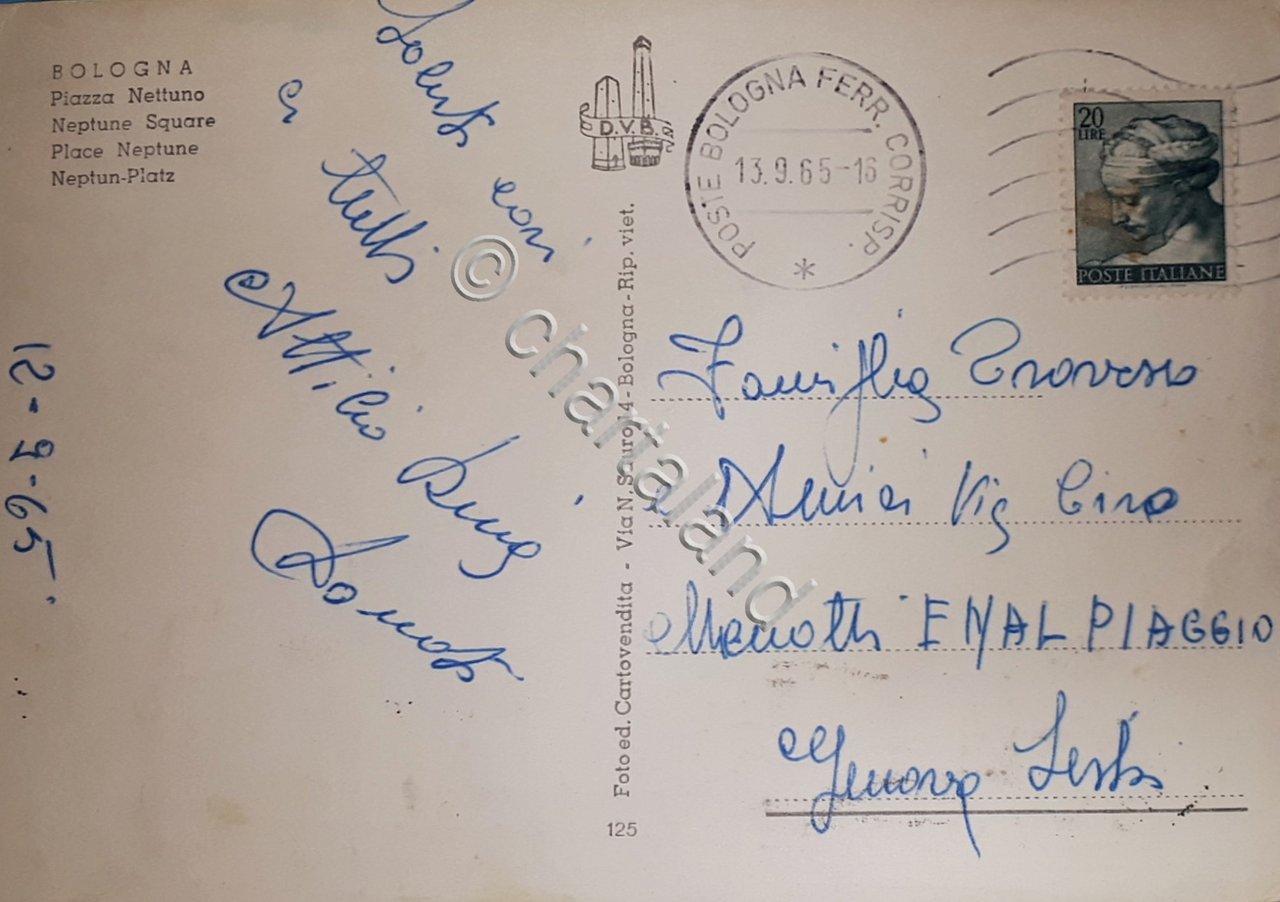 BOLOGNA
Piazza Nettuno
Neptune Square
Place Neptune
Neptun-Platz
Saluti cari
a tutti
Attilio
12-9-65
D.V.B.
POSTE BOLOGNA FERR. CORRISP.
13.9.65-16
*
20
LIRE
POSTE ITALIANE
Foto ed. Cartovendita - Via N. Sauro, 14 - Bologna - Rip. viet.
125
Famiglia Traverso
Amici Via Ciro
Menotti ENAL PIAGGIO
Genova Sestri
© chartaland